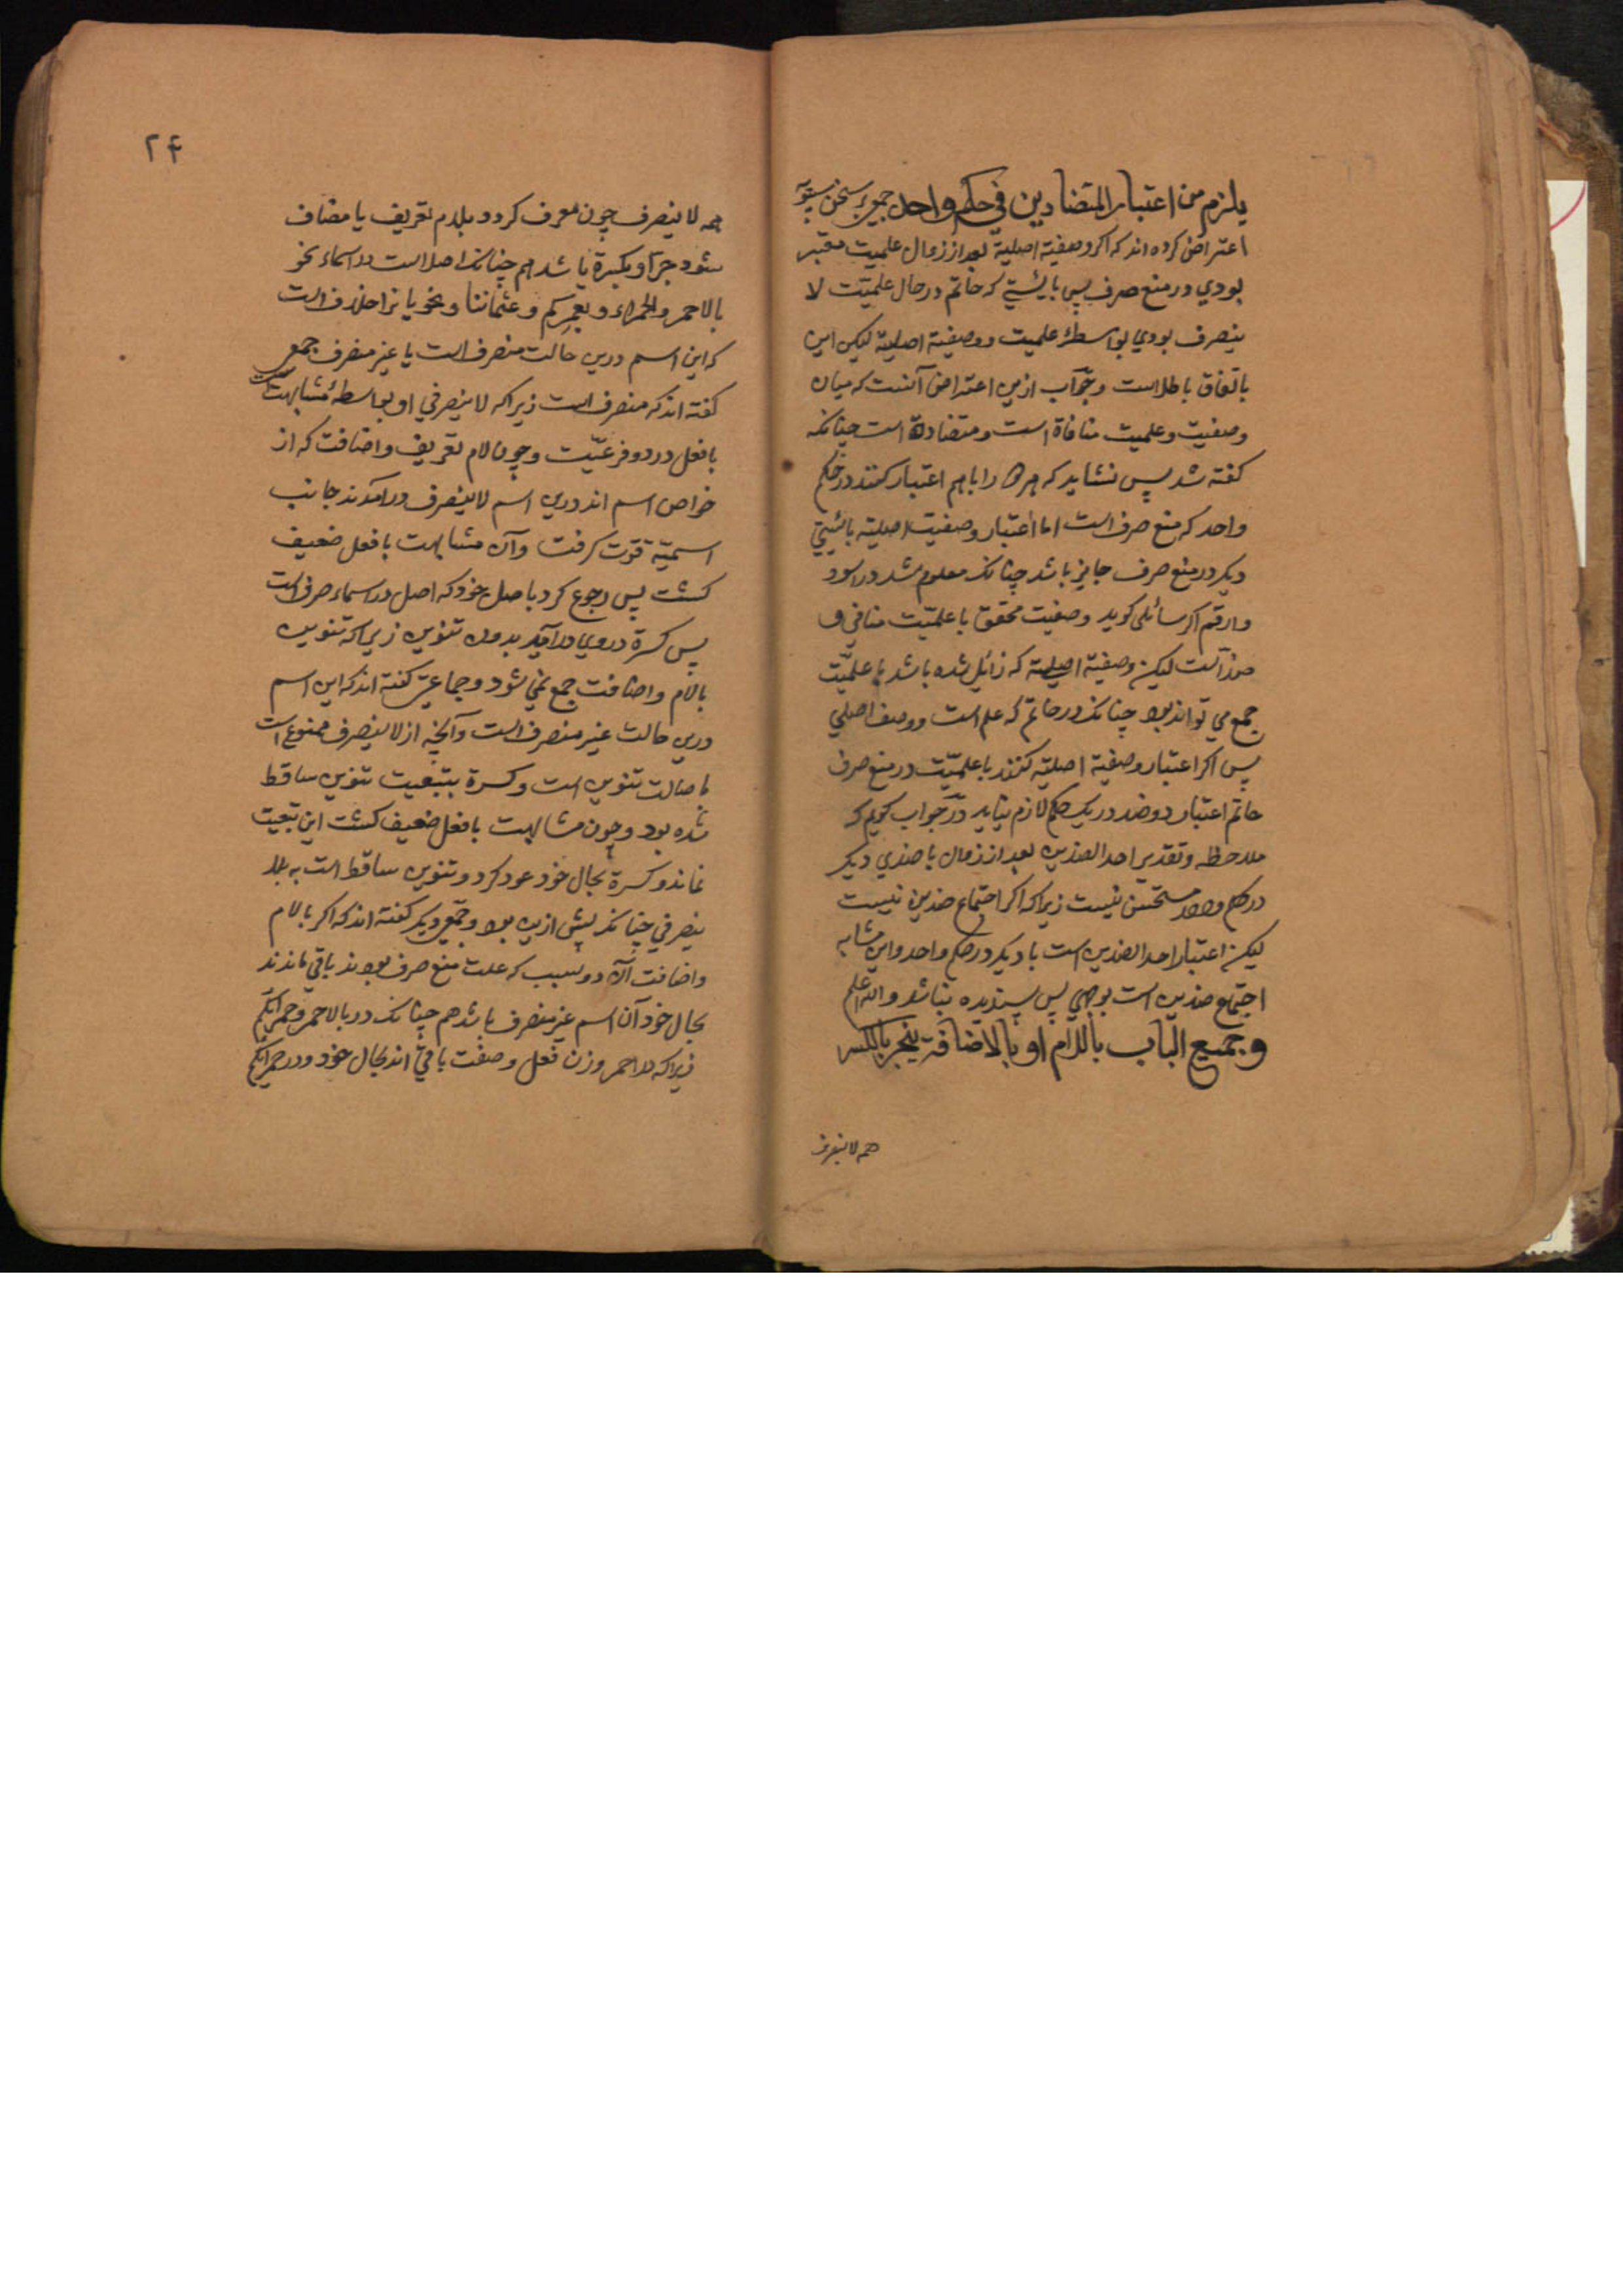 یلزم من اعتبار المتضادین فی حکم واحد جمعی بر سخن سیبویه
اعتراض کرده اند که اکر وصفیة اصلیة بعد از زوال علمیت معتبر
بودی در منع صرف پس بایستی که حاتم در حال علمیّت لا
ینصرف بودی بواسطهٔ علمیت و وصفیة اصلیة لیکن این
باتفاق باطلاست وجواب ازین اعتراض آنست که میان
وصفیت وعلمیت منافاة است ومتضادة است چنانکه
کفته شد پس نشاید که هر دو را باهم اعتبار کنند در حکم
واحد که منع صرف است اما اعتبار وصفیت اصلیة باشیئی
دیکر در منع صرف جایز باشد چنانکه معلوم شد در اسود
وارقم اکر سائلی کوید وصفیت محقق با علمیّت منافی و
ضد است لیکن وصفیة اصلیة که زائل شده باشد با علمیّت
جمع می تواند بود چنانکه در حاتم که علم است ووصف اصلی
پس اکر اعتبار وصفیة اصلیه کنند با علمیّت در منع صرف
حاتم اعتبار دو ضد در یک حکم لازم نیاید در جواب کویم که
ملاحظه وتقدیر احد الضدین بعد از زوال با ضدی دیکر
در حکم واحد مستحسن نیست زیرا که اکر اجتماع ضدین نیست
لیکن اعتبار احد الضدین است با دیکر در حکم واحد واین مشابه
اجتماع ضدین است بوجهی پس پسندیده نباشد والله اعلم
وجمیع الباب باللام او بالاضافة ینجر بالکسر
همه لا ینصرف
۲۴
همه لا ینصرف چون معرف کردد بلام تعریف یا مضاف
شود جر او بکسرة باشد هم چنانکه اصل است در اسماء نحو
بالاحمر والحمراء وبعمرکم وعثماننا ونحویانرا خلاف است
که این اسم درین حالت منصرف است یا غیر منصرف جمعی
کفته اند که منصرف است زیرا که لا ینصرفی او بواسطهٔ مشابهت است
بافعل در دو فرعیّت وچون لام تعریف واضافت که از
خواص اسم اند درین اسم لا ینصرف در آمدند جانب
اسمیّة قوّت کرفت وآن مشابهت بافعل ضعیف
کشت پس رجوع کرد باصل خود که اصل در اسماء صرف است
پس کسرة دروی در آید بدون تنوین زیرا که تنوین
بالام واضافت جمع نمی شود وجماعتی کفته اند که این اسم
درین حالت غیر منصرف است وآنچه از لا ینصرف ممنوع است
باصالت تنوین است وکسرة بتبعیت تنوین ساقط
شده بود وچون مشابهت بافعل ضعیف کشت این تبعیت
نماند وکسرة بحال خود عود کرد وتنوین ساقط است به لا
ینصرفی چنانکه پیش ازین بود وجمعی دیکر کفته اند که اکر بالام
واضافت آن دو سبب که علت منع صرف بودند باقی ماندند
بحال خود آن اسم غیر منصرف باشد هم چنانکه در بالاحمر وحمرائکم
زیرا که در احمر وزن فعل وصفت باقی اند بحال خود ودر حمرائکم